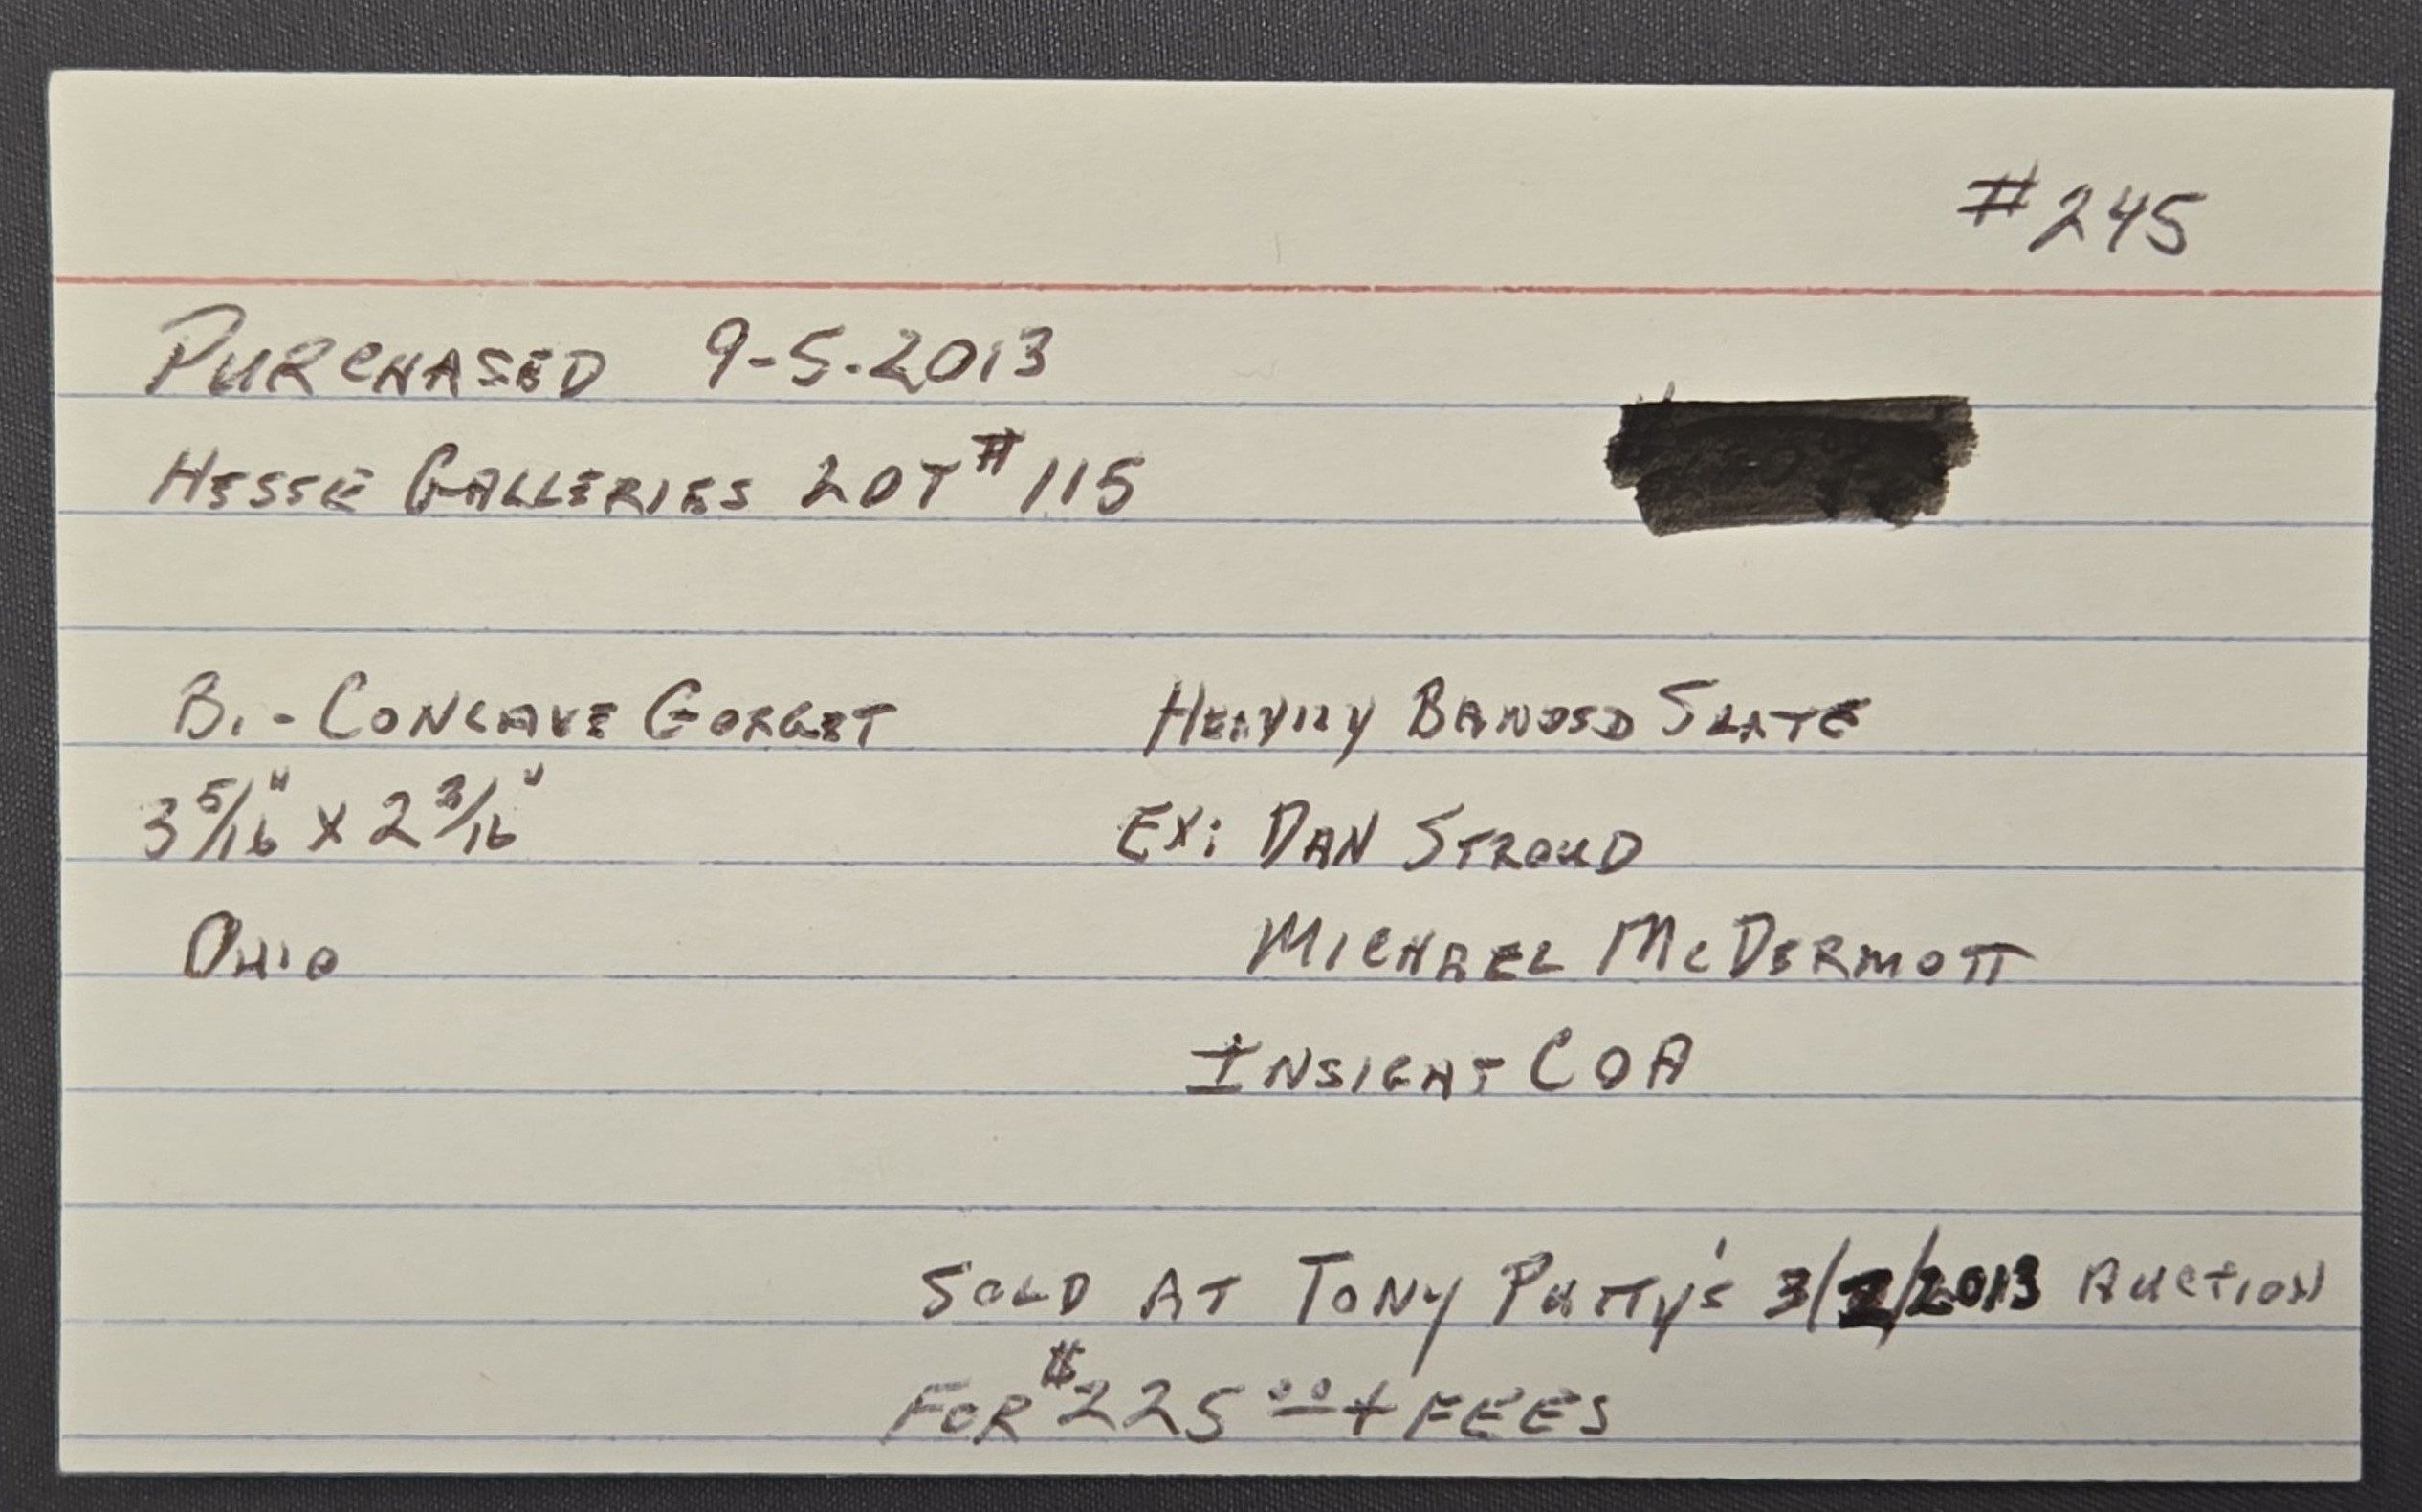 #245
PURCHASED 9-5-2013
HESSE GALLERIES LOT # 115
BI-CONCAVE GORGET HEAVILY BANDED SLATE
3 5/16" X 2 3/16" EX: DAN STROUD
OHIO MICHAEL McDERMOTT
INSIGHT COA
SOLD AT TONY PUTTY'S 3/2/2013 AUCTION
FOR $225 00 + FEES